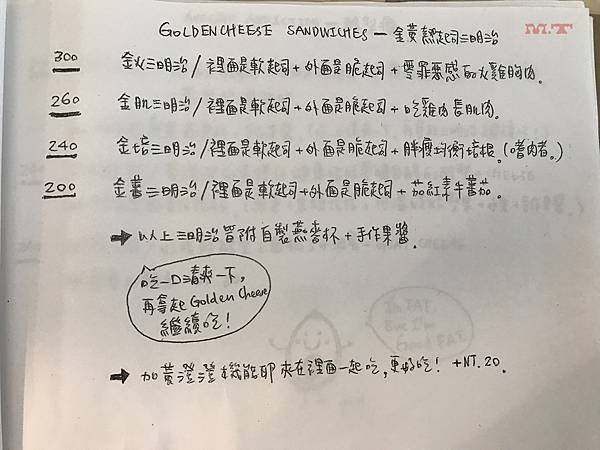 M.T
GOLDENCHEESE SANDWICHES — 金黃熱起司三明治
300 金火三明治/裡面是軟起司+外面是脆起司+零罪惡感的火雞胸肉。
260 金肌三明治/裡面是軟起司+外面是脆起司+吃雞肉長肌肉。
240 金培三明治/裡面是軟起司+外面是脆起司+胖瘦均衡培根。(嗜肉者。)
200 金蕃三明治/裡面是軟起司+外面是脆起司+茄紅素牛蕃茄。
→ 以上三明治皆附自製燕麥杯+手作果醬。
吃一口清爽一下,
再拿起Golden Cheese
繼續吃!
I'm FAT.
But I'm
Good FAT.
→ 加黃澄澄機能耶夾在裡面一起吃,更好吃! +NT.20.